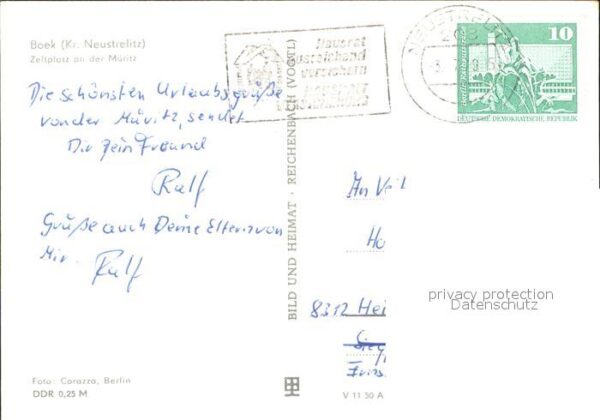 Boek (Kr. Neustrelitz)
Zeltplatz an der Müritz
Die schönsten Urlaubsgrüße
von der Müritz, sendet
Dir Dein Freund
Ralf
Grüße auch Deine Eltern von
Mir. Ralf
Foto: Corazza, Berlin
DDR 0,25 M
BILD UND HEIMAT · REICHENBACH (VOGTL)
V 11 50 A
Hausrat
ausreichend
versichern
NEUSTRELITZ
10
DEUTSCHE DEMOKRATISCHE REPUBLIK
An
Ho
8312 Hei
privacy protection
Datenschutz